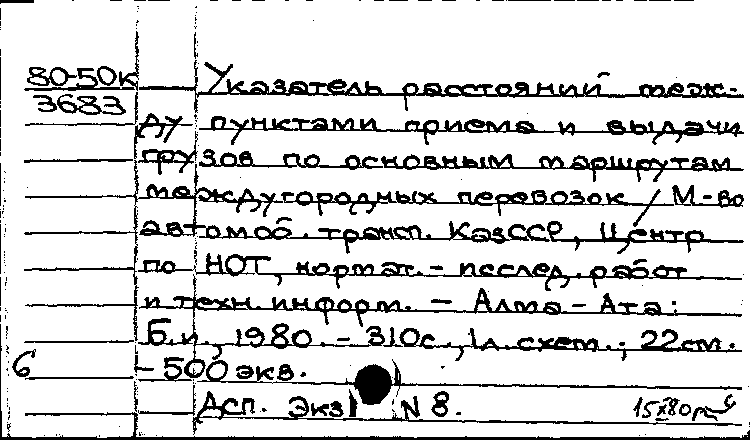 80-50к
3683
Указатель расстояний меж-
ду пунктами приема и выдачи
грузов по основным маршрутам
междугородных перевозок / М-во
автомоб. трансп. КазССР, Центр
по НОТ, нормат.- исслед. работ
и техн. информ. - Алма-Ата:
Б.и., 1980. - 310с., 1л. схем.; 22см.
6 - 500 экз.
Дсп. Экз N 8.